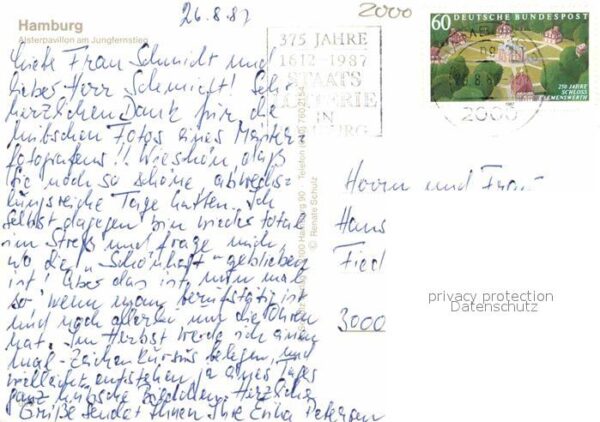 Hamburg
Alsterpavillon am Jungfernstieg
26.8.87
2000
60 DEUTSCHE BUNDESPOST
250 JAHRE
SCHLOSS
CLEMENSWERTH
375 JAHRE
1612-1987
STAATS
LOTTERIE
IN
HAMBURG
2000
Liebe Frau Schmidt und
lieber Herr Schmidt! Sehr
herzlichen Dank für die
hübschen Fotos eines Meister
fotografens!! Wie schön daß
Sie noch so schöne abwechs-
lungsreiche Tage hatten. Ich
selbst dagegen bin wieder total
im Streß und frage mich
wo die "Schönheit" geblieben
ist! Aber das ist nun mal
so wenn man berufstätig ist
und noch allerlei um die Ohren
hat. Im Herbst werde ich einen
Mal-Zeichenkursus belegen, und
vielleicht entstehen ja eines Tages
ganz hübsche Bildchen. Herzliche
Grüße sendet Ihnen Ihre Erika Petersen
Hamburg 90 Telefon (040) 760 2154
© Renate Schutz
Herrn und Frau
Hans
Fied
3000
privacy protection
Datenschutz